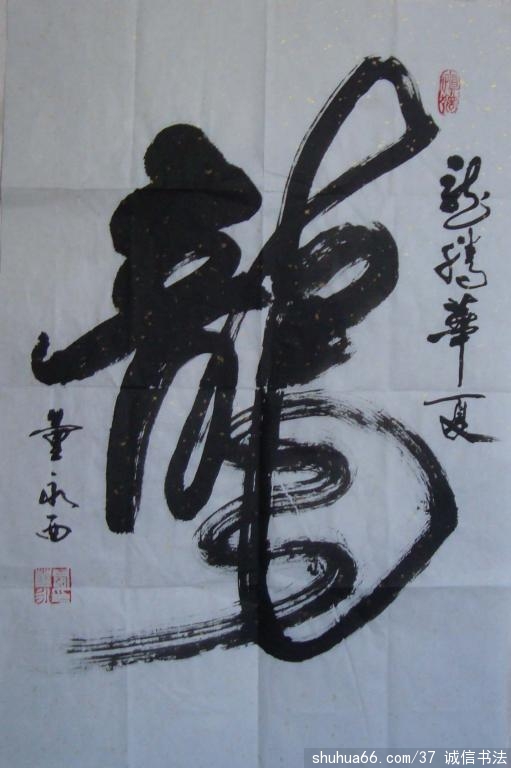 龍騰華夏
龍
董永西
shuhua66.com/37 诚信书法